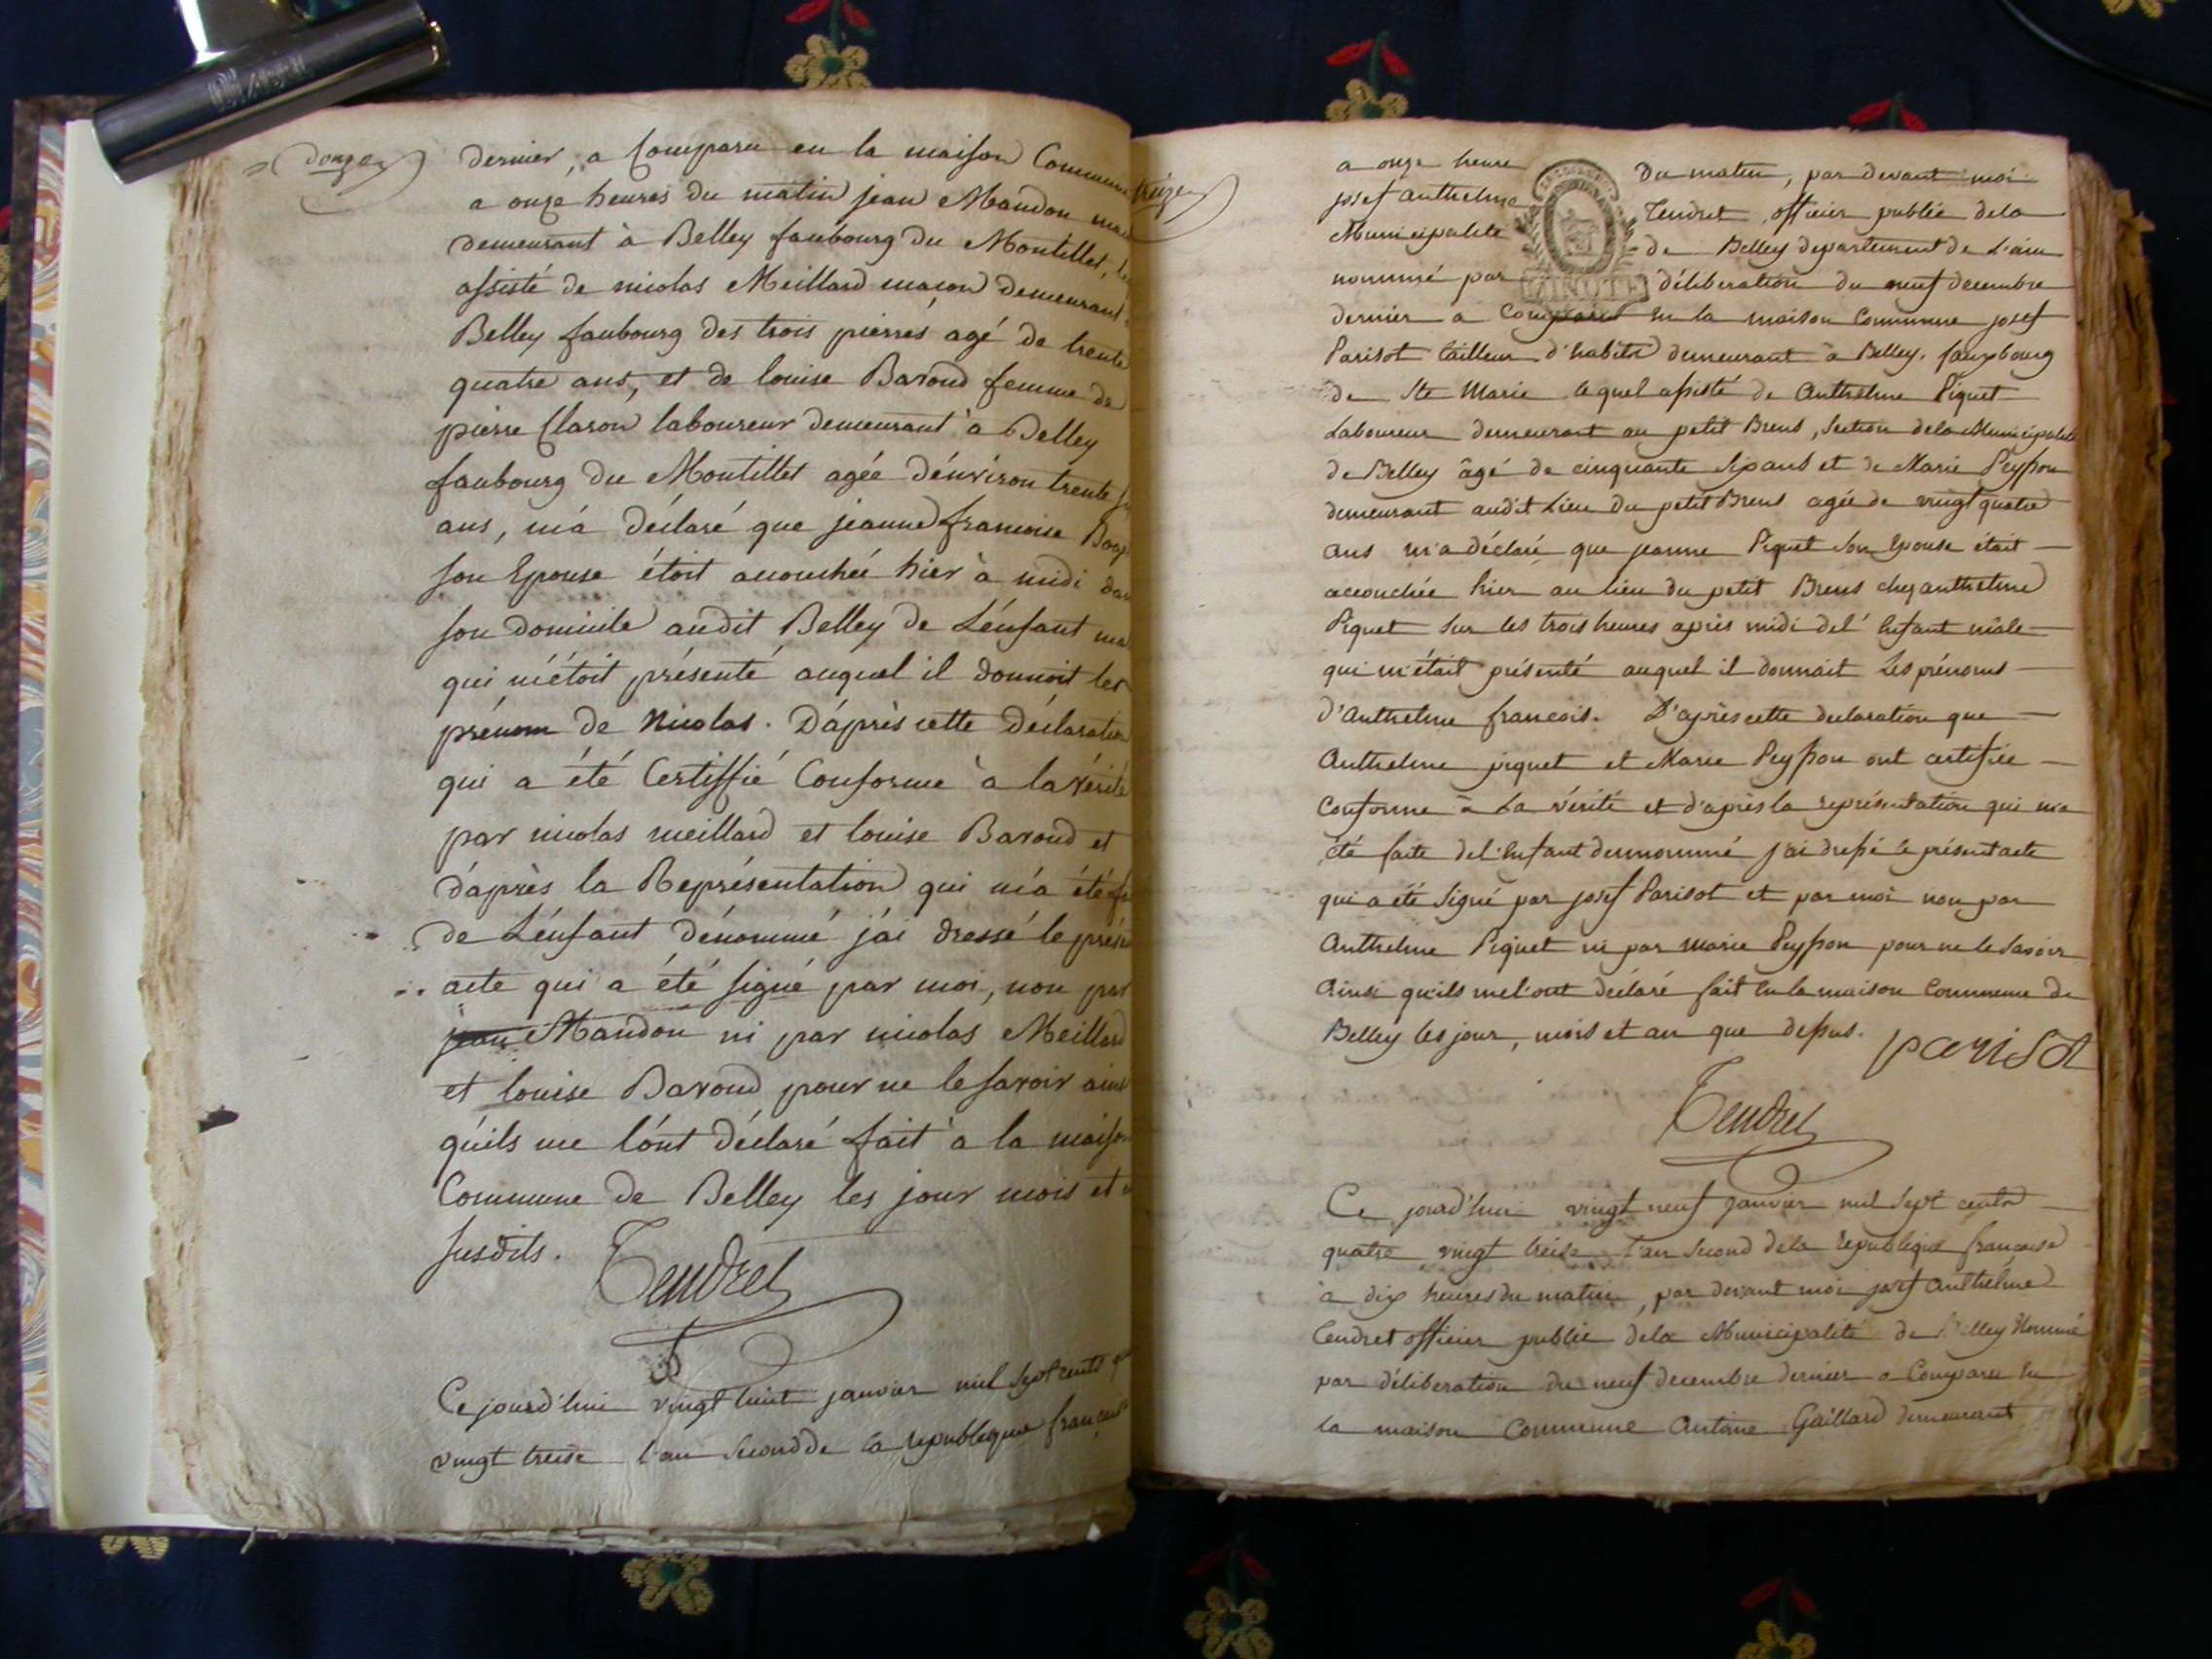 douze
dernier, a Comparu en la maison Commune
a onze heures du matin jean Mandon
demeurant à Belley faubourg du Montillet,
assisté de nicolas Meillard maçon demeurant
Belley faubourg des trois pierres agé de trente
quatre ans, et de louise Baroud femme de
pierre Claron laboureur demeurant à Belley
faubourg du Montillet agée d'environ trente
ans, m'a déclaré que jeanne francoise
son Epouse étoit accouchée hier à midi dans
son domicile audit Belley de L'énfant
qui m'étoit présenté auquel il donnoit les
prénom de Nicolas. D'après cette Déclaration
qui a été Certiffié Conforme à la vérité
par nicolas meillard et louise Baroud et
d'après la Représentation qui m'a été
de L'énfant dénommé j'ai dressé le
acte qui a été signé par moi, non par
jean Mandon ni par nicolas Meillard
et louise Baroud pour ne le savoir
qu'ils me l'ont déclaré fait à la maison
Commune de Belley les jour mois et
susdits.
Tendret
Ce jourd'hui vingt huit janvier mil sept cents
vingt treise l'an second de la republique française
treize
a onze heure du matin, par devant moi
josef anthelme Tendret, officier public dela
Municipalité de Belley departement de L'ain
nommé par déliberation du neuf decembre
MINUTE
dernier a Comparu en la maison Commune josef
Parisot tailleur d'habits demeurant à Belley, fauxbourg
de Ste Marie lequel assisté de Anthelme Piquet
Laboureur demeurant au petit Brens, Section dela Municipalité
de Belley âgé de cinquante six ans et de Marie Peysson
demeurant audit Lieu du petit Brens agée de vingt quatre
ans m'a déclaré que jeanne Piquet son Epouse était
accouchée hier au lieu du petit Brens chez anthelme
Piquet sur les trois heures après midi del' Enfant mâle
qui m'était présenté auquel il donnait Les prénoms
d'Anthelme françois. D'après cette declaration que
Anthelme piquet et Marie Peysson ont certifiée
Conforme à La vérité et d'après la représentation qui m'a
été faite del'Enfant denommé j'ai dressé le présent acte
qui a été signé par josef Parisot et par moi non par
Anthelme Piquet ni par Marie Peysson pour ne le savoir
Ainsi qu'ils me l'ont déclaré fait en la maison Commune de
Belley les jour, mois et an que dessus.
parisot
Tendret
Ce jourd'hui vingt neuf janvier mil sept cents
quatre vingt treise l'an second dela république française
à dix heures du matin, par devant moi josef anthelme
Tendret officier public dela Municipalité de Belley Nommé
par déliberation du neuf decembre dernier a Comparu en
la maison Commune Antoine Gaillard demeurant